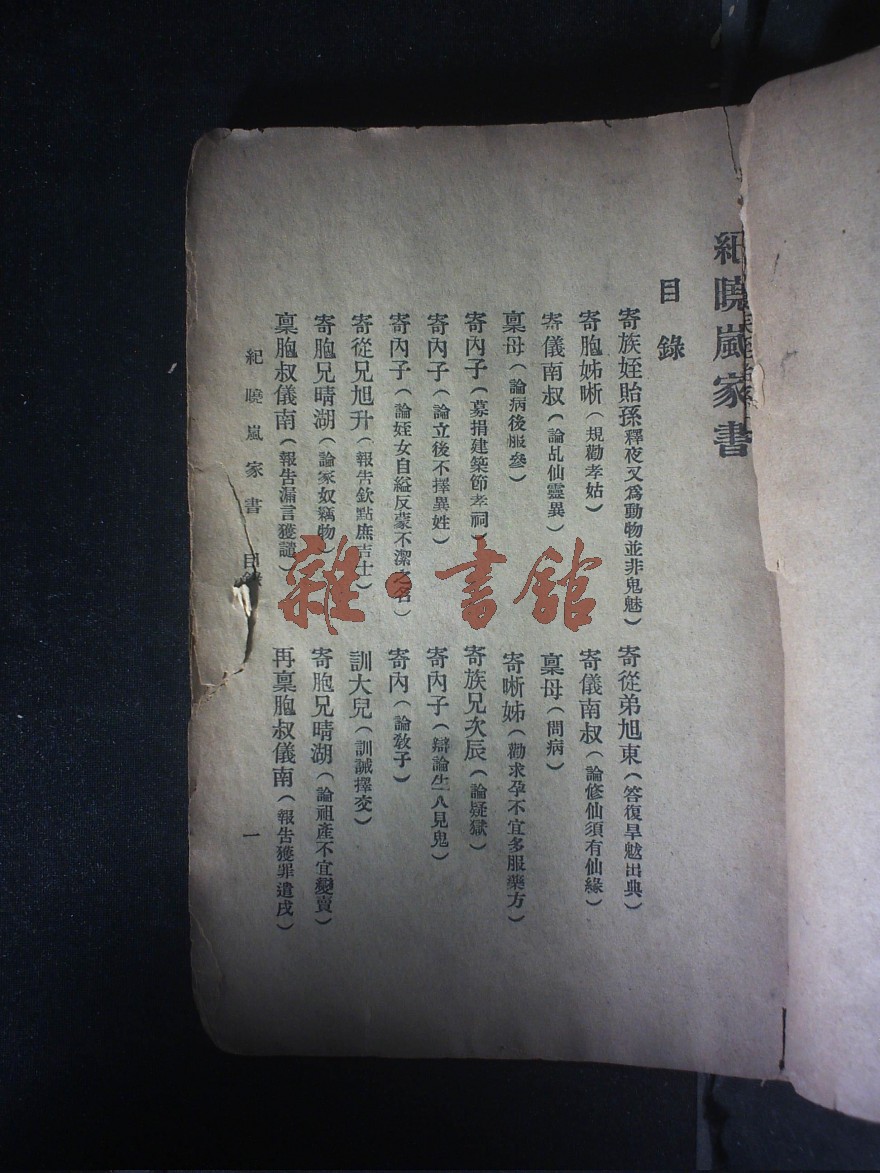 紀曉嵐家書
目錄
寄族姪貽孫釋夜叉爲動物並非鬼魅）
寄從弟旭東（答復旱魃出典）
寄胞姊晰（規勸孝姑）
寄儀南叔（論修仙須有仙緣）
寄儀南叔（論乩仙靈異）
稟母（問病）
稟母（論病後服參）
寄晰姊（勸求孕不宜多服藥方）
寄內子（募捐建築節孝祠）
寄族兄次辰（論疑獄）
寄內子（論立後不擇異姓）
寄內子（辯論生人見鬼）
寄內子（論姪女自縊反蒙不潔之名）
寄內（論教子）
寄從兄旭升（報告欽點庶吉士）
訓大兒（訓誡擇交）
寄胞兄晴湖（論家奴竊物）
寄胞兄晴湖（論祖產不宜變賣）
稟胞叔儀南（報告漏言獲譴）
再稟胞叔儀南（報告獲罪遣戌）
紀曉嵐家書 目錄 一
雜·書館